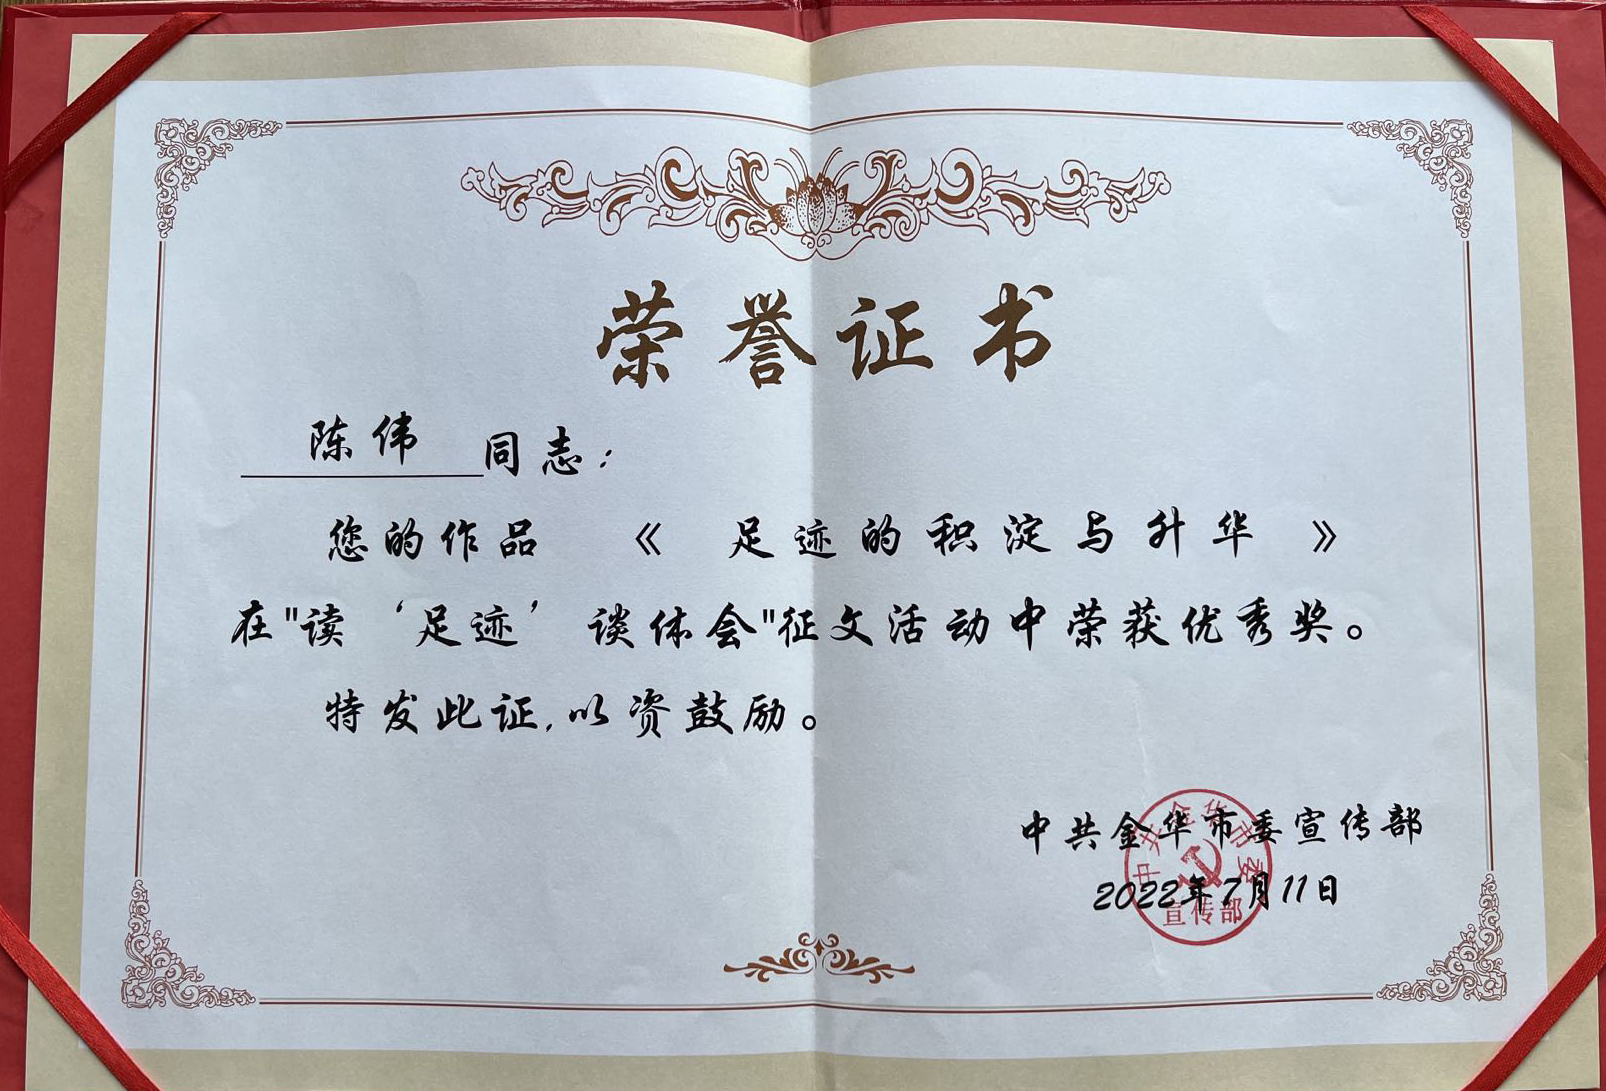 荣誉证书
陈伟 同志：
您的作品 《 足迹的积淀与升华 》
在"读‘足迹’谈体会"征文活动中荣获优秀奖。
特发此证,以资鼓励。
中共金华市委宣传部
2022年7月11日
中共金华市委
宣传部